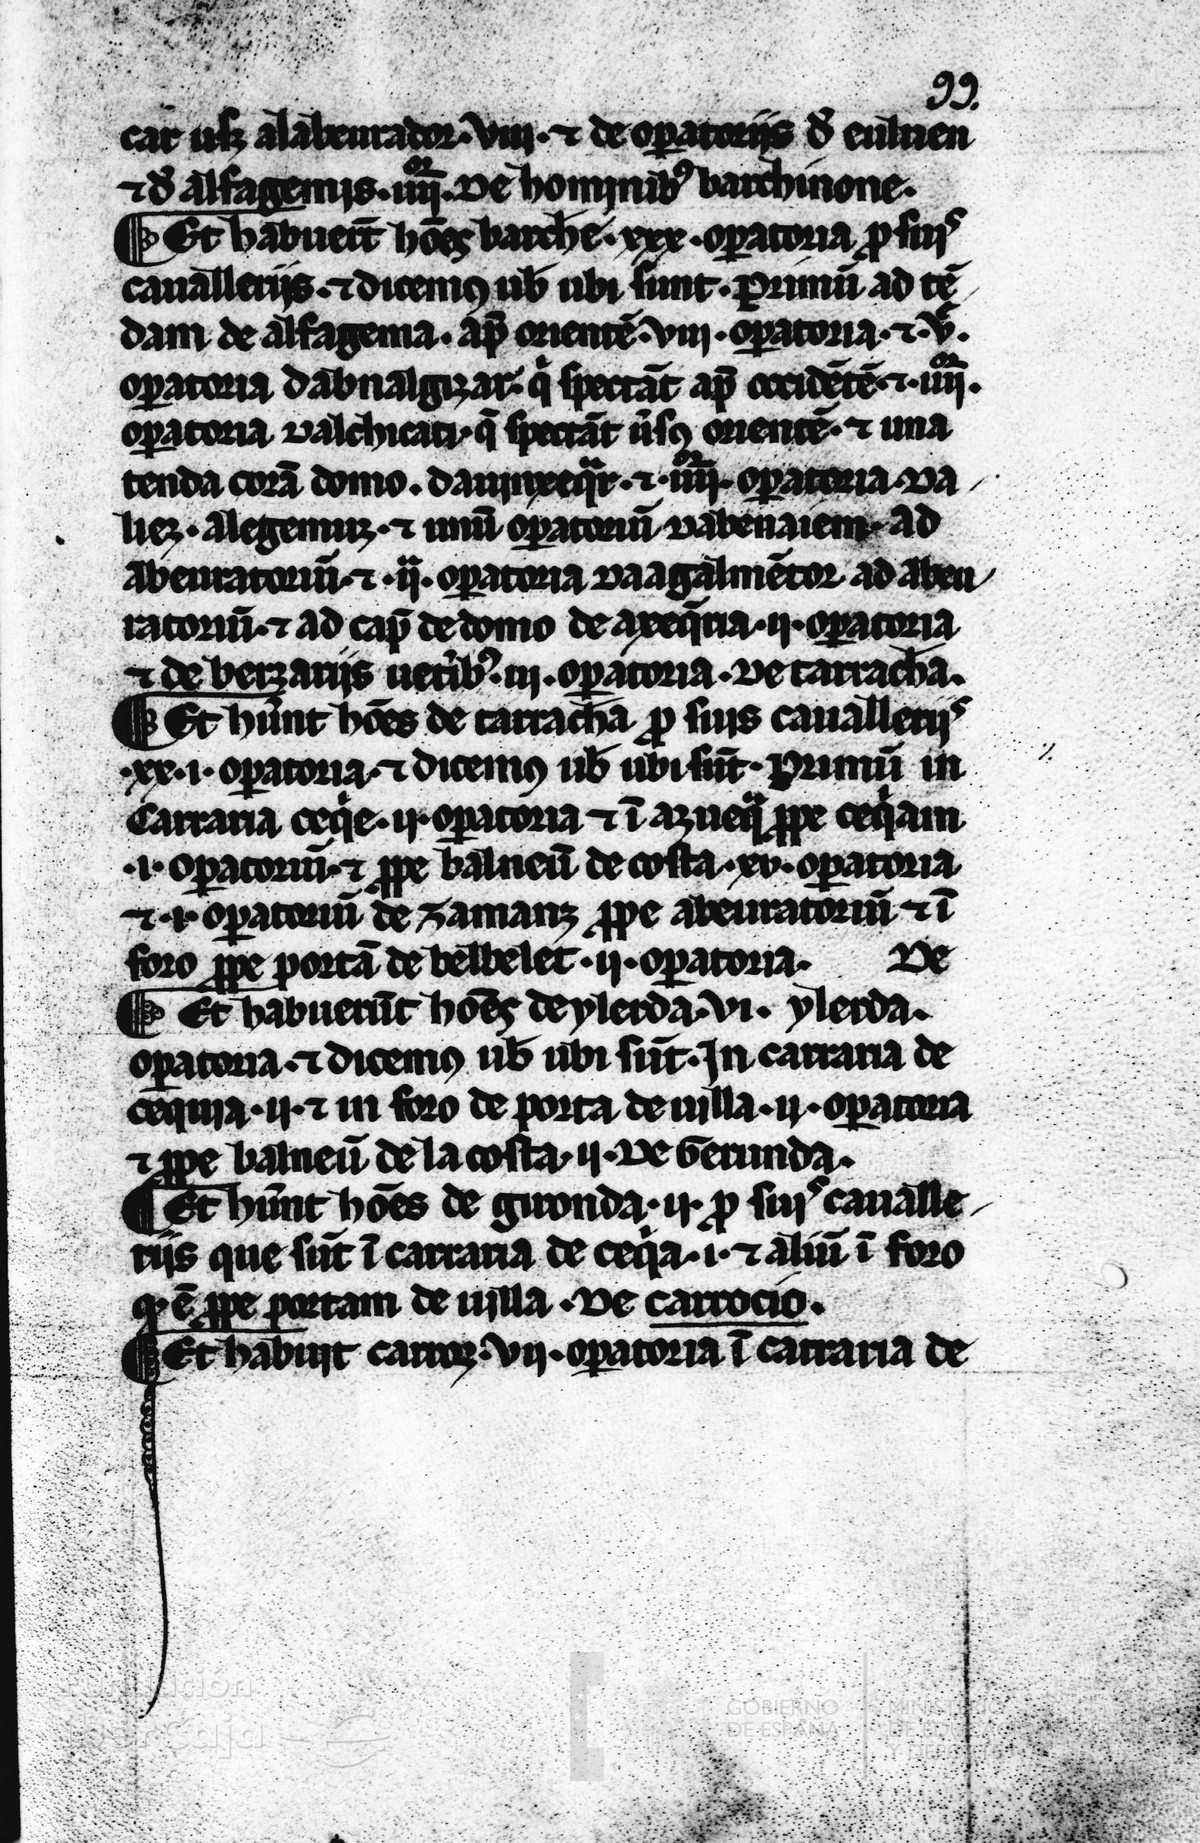 99.
car usqȝ alabeurador · viii · ⁊ de operatoriis d̓ euluen
⁊ d̓ alfagemis · iiiior · De hominibꝰ barchinone ·
Et habuer̄t hōēs barchn̄e · xxx · operatoria ꝓ suis
cauallerijs · ⁊ dicemꝰ uƀ ubi sunt · Primū ad tē
dam de alfagema · ap̄ orientē · viii · operatoria · ⁊ v ·
operatoria dabnalgizar · q̄ spectāt ap̄ occidētē · ⁊ · iiiior ·
operatoria Dalchicati · q̄ spectāt ūsꝰ orientē · ⁊ una
tenda corā domo · ⁊ · iiiior · operatoria · Da
liez · alegemuz · ⁊ unū operatoriū Dabenaiem · Ad
abeuratoriū · ⁊ · ii · operatoria Daagalmētor ad abeu
ratoriū · ⁊ ad cap̄ de domo de axeq̄ria · ii · operatoria
⁊ de berzariis uerībꝰ · iii · operatoria · De tarracħa ·
Et hūnt hōēs de tarracħa ꝓ suis caualleriis
· xx · i · operatoria · ⁊ dicemꝰ uƀ ubi sūt · Primū in
Carraria ceqͥe · ii · operatoria ⁊ ī azueqͣ ꝓpe ceqͥam
· i · operatoriū · ⁊ ꝓpe balneū de costa · xv · operatoria
⁊ · i · operatoriū de Zamanz ꝓpe abeuratoriū ⁊ ī
foro ꝓpe portā de belbelet · ii · operatoria · De
Et habuerūt hōēs de ylerda · vi · ylerda ·
operatoria · ⁊ dicemꝰ uƀ ubi sūt · In carraria de
cequia · ii · ⁊ in foro de porta de uilla · ii · operatoria
⁊ ꝓpe balneū de la costa · ii · De Gerunda ·
Et hūnt hōēs de gironda · ii · ꝓ suis caualle
riis que sūt ī carraria de ceqͥa · i · ⁊ aliū ī foro
q · ē ꝓpe portam de uilla · De carrocio ·
Et habuit carroz · vii · operatoria ī carraria de
Fundación
iberCaja
GOBIERNO
DE ESPAÑA
MINISTERIO